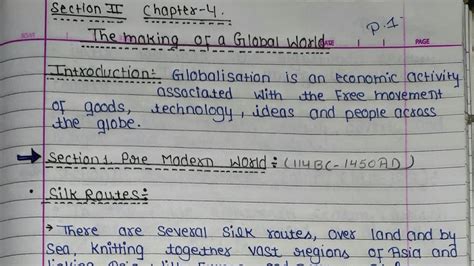 Section II Chapter-4.
P.1
The making of a Global World
PAGE
Introduction:- Globalisation is an Economic activity
associated with the Free movement
of goods, technology, ideas and people across
the globe.
Section 1. Pre Modern World: (114BC-1450AD)
Silk Routes:
→ There are several silk routes, over land and by
sea, knitting together vast regions of Asia and